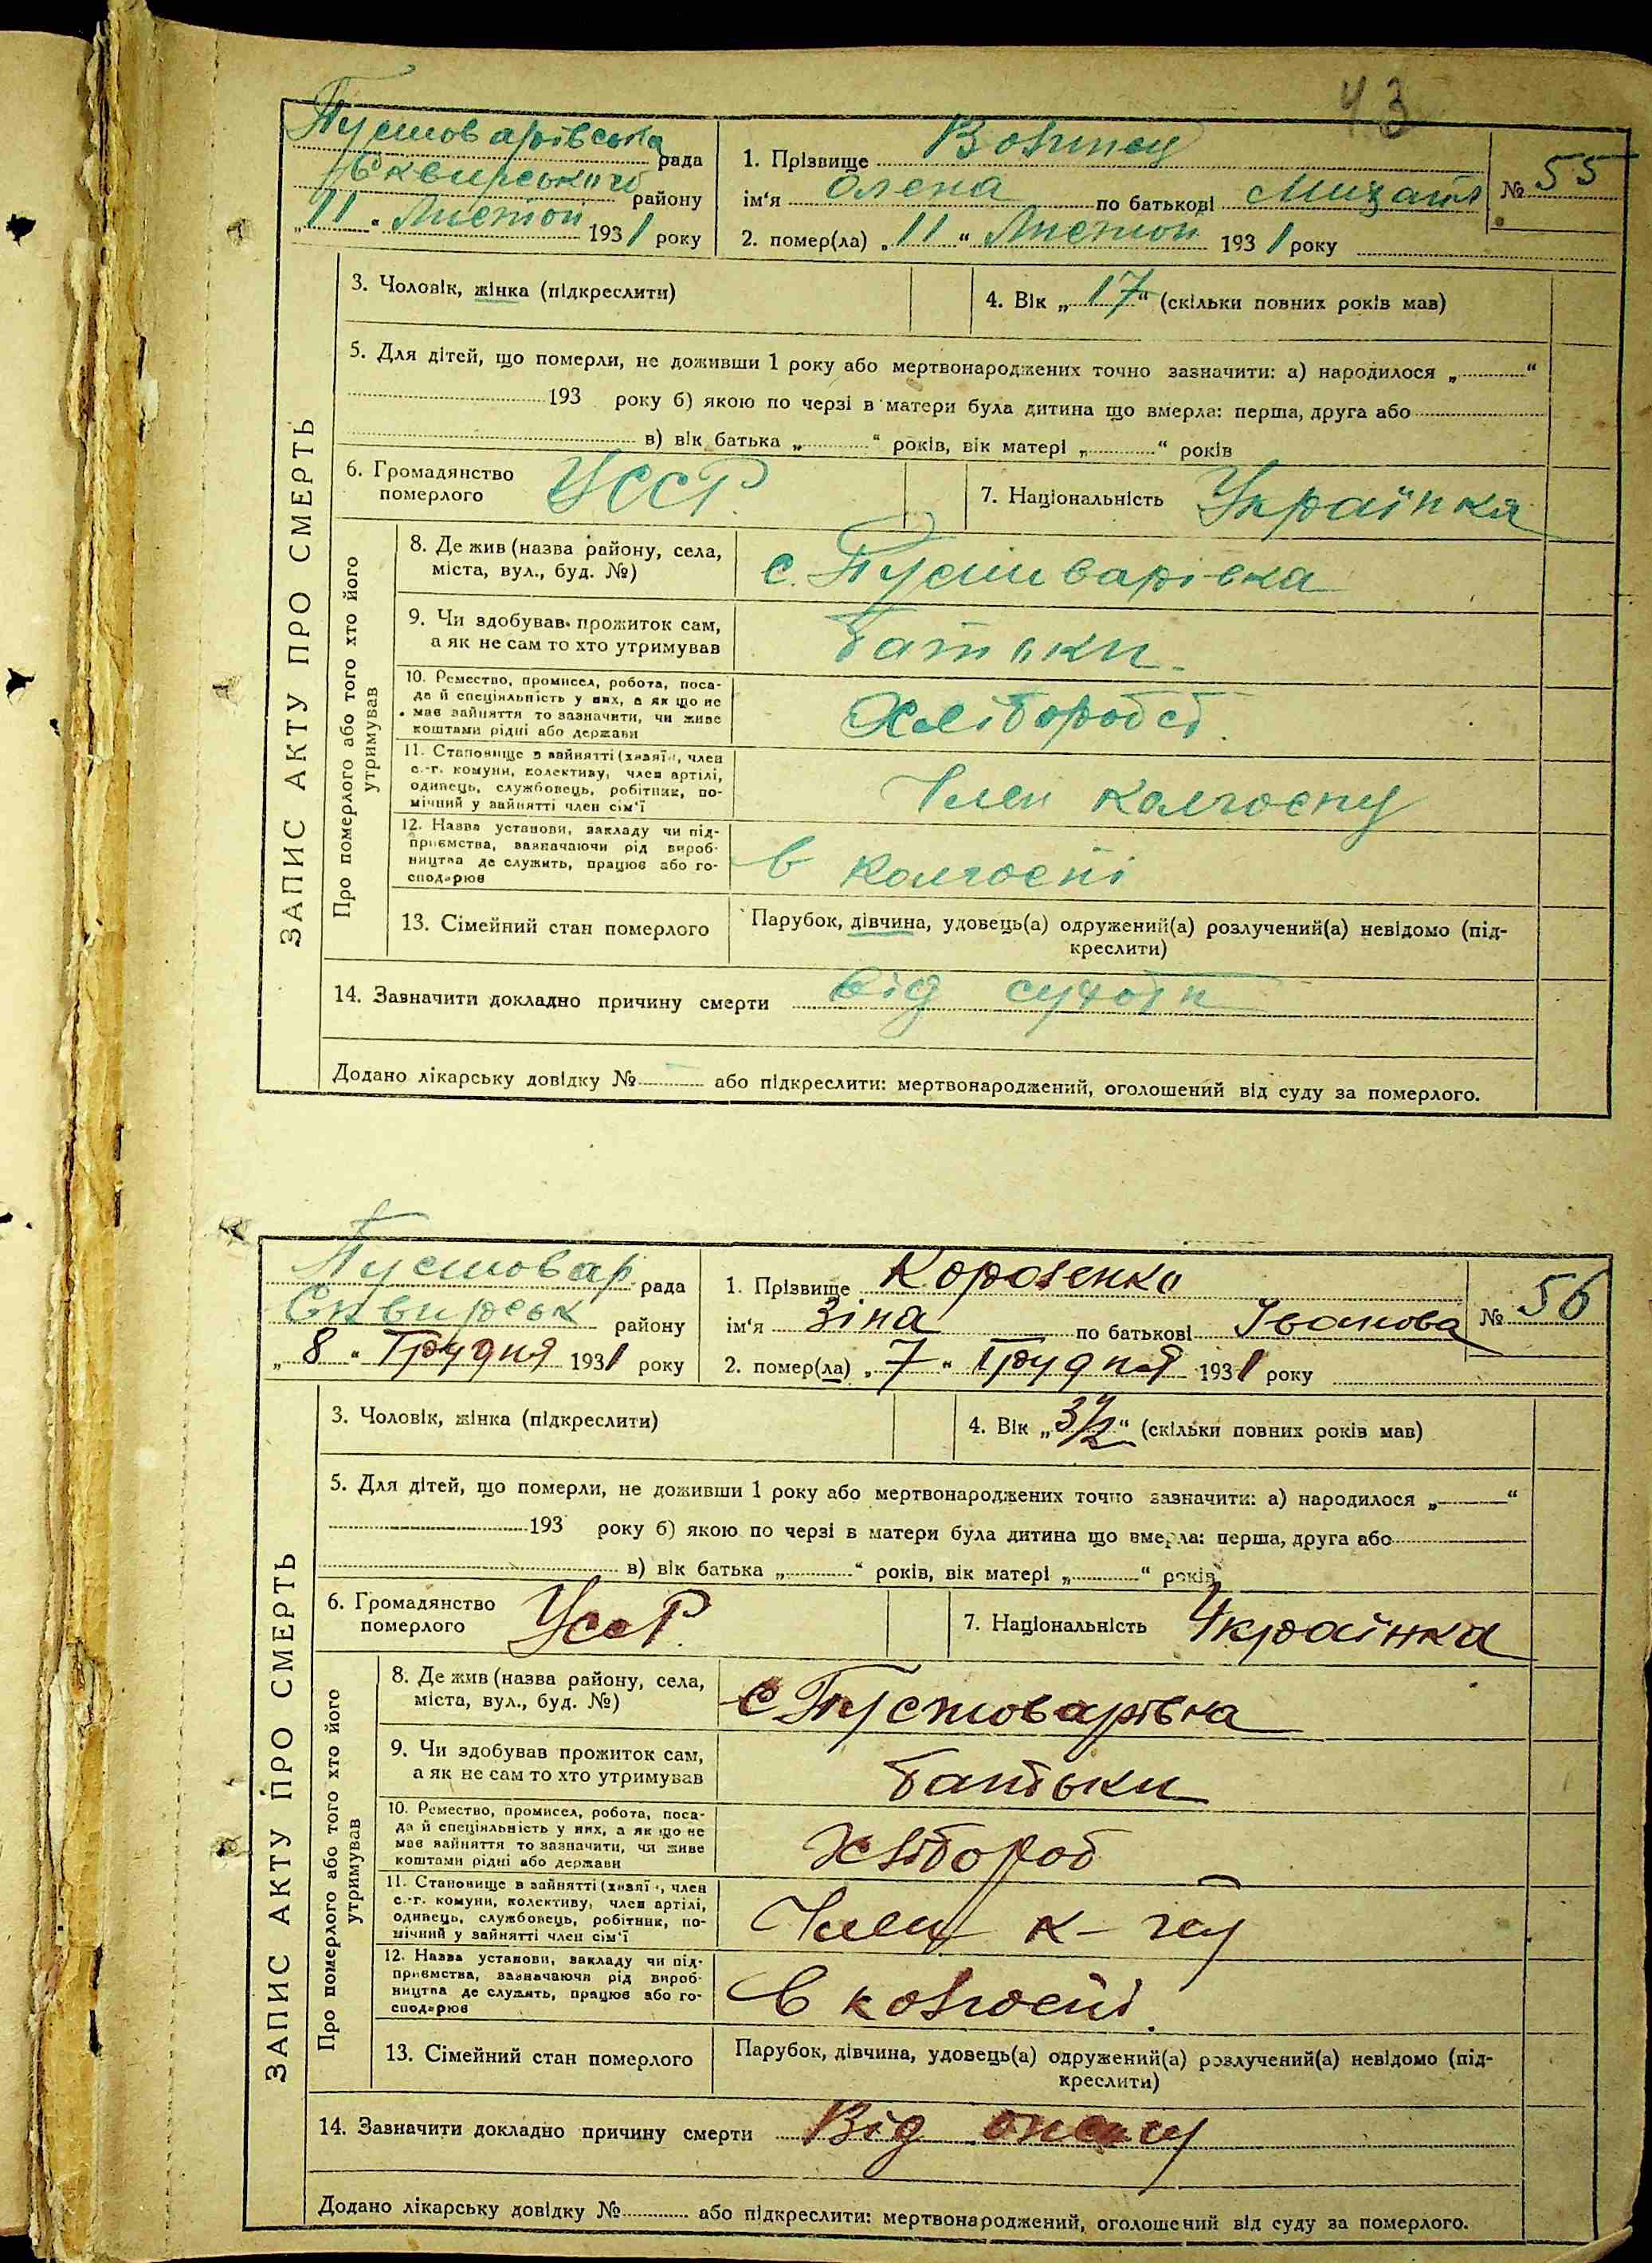 43
Пустоварівська рада
Сквирського району
„11“ Листоп 1931 року
1. Прізвище
ім'я Олена по батькові
№ 55
2. помер(ла) „11“ Листоп 1931 року
ЗАПИС АКТУ ПРО СМЕРТЬ
3. Чоловік, жінка (підкреслити)
4. Вік „17“ (скільки повних років мав)
5. Для дітей, що померли, не доживши 1 року або мертвонароджених точно зазначити: а) народилося „ “
193 року б) якою по черзі в матери була дитина що вмерла: перша, друга або
в) вік батька „ “ років, вік матері „ “ років
6. Громадянство
померлого УССР.
7. Національність Українка
Про померлого або того хто його
утримував
8. Де жив (назва району, села,
міста, вул., буд. №)
с. Пустоварівка
9. Чи здобував прожиток сам,
а як не сам то хто утримував
Батьки
10. Ремество, промисел, робота, поса-
да й спеціяльність у них, а як що не
має зайняття то зазначити, чи живе
коштами рідні або держави
Хлібороб
11. Становище в зайнятті (хазяїн, член
с.-г. комуни, колективу, член артілі,
одинець, службовець, робітник, по-
мічний у зайнятті член сім'ї
Член колгоспу
12. Назва установи, закладу чи під-
приємства, зазначаючи рід вироб-
ництва де служить, працює або го-
сподарює
в колгоспі
13. Сімейний стан померлого
Парубок, дівчина, удовець(а) одружений(а) розлучений(а) невідомо (під-
креслити)
14. Зазначити докладно причину смерти від сухот
Додано лікарську довідку № або підкреслити: мертвонароджений, оголошений від суду за померлого.
Пустовар рада
Сквирськ району
„8“ Грудня 1931 року
1. Прізвище
ім'я Зіна по батькові Іванова
№ 56
2. помер(ла) „7“ Грудня 1931 року
ЗАПИС АКТУ ПРО СМЕРТЬ
3. Чоловік, жінка (підкреслити)
4. Вік „3 1/2“ (скільки повних років мав)
5. Для дітей, що померли, не доживши 1 року або мертвонароджених точно зазначити: а) народилося „ “
193 року б) якою по черзі в матери була дитина що вмерла: перша, друга або
в) вік батька „ “ років, вік матері „ “ років
6. Громадянство
померлого УССР.
7. Національність Українка
Про померлого або того хто його
утримував
8. Де жив (назва району, села,
міста, вул., буд. №)
с Пустоварівка
9. Чи здобував прожиток сам,
а як не сам то хто утримував
батьки
10. Ремество, промисел, робота, поса-
да й спеціяльність у них, а як що не
має зайняття то зазначити, чи живе
коштами рідні або держави
Хлібороб
11. Становище в зайнятті (хазяїн, член
с.-г. комуни, колективу, член артілі,
одинець, службовець, робітник, по-
мічний у зайнятті член сім'ї
Член к-гу
12. Назва установи, закладу чи під-
приємства, зазначаючи рід вироб-
ництва де служить, працює або го-
сподарює
в колгоспі.
13. Сімейний стан померлого
Парубок, дівчина, удовець(а) одружений(а) розлучений(а) невідомо (під-
креслити)
14. Зазначити докладно причину смерти Від
Додано лікарську довідку № або підкреслити: мертвонароджений, оголошений від суду за померлого.